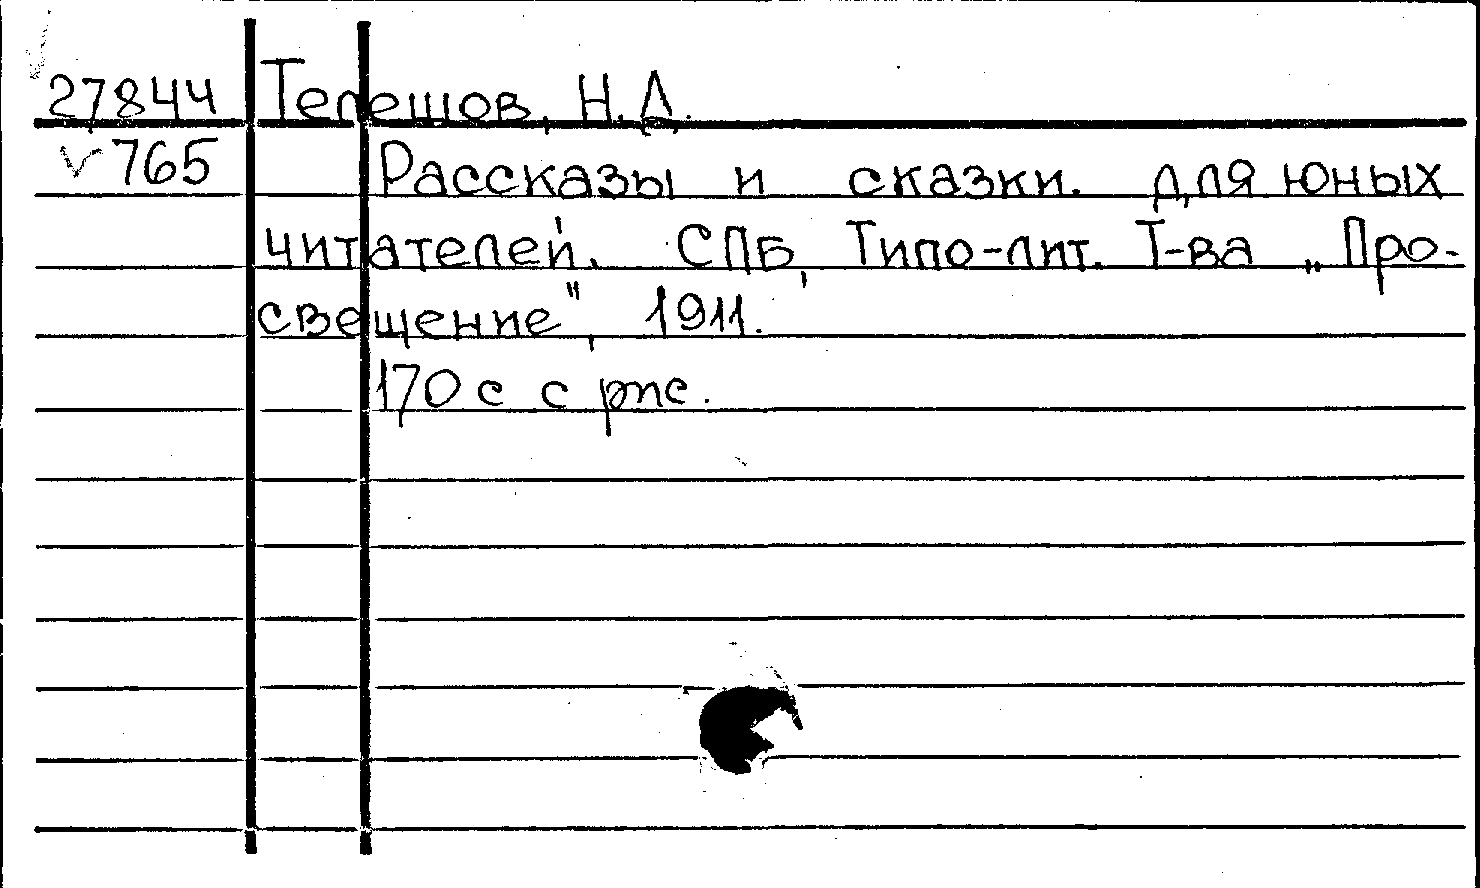 27844 Телешов, Н.Д.
✓765 Рассказы и сказки. Для юных
читателей. СПБ, Типо-лит. Т-ва „Про-
свещение", 1911.
170 с с рис.